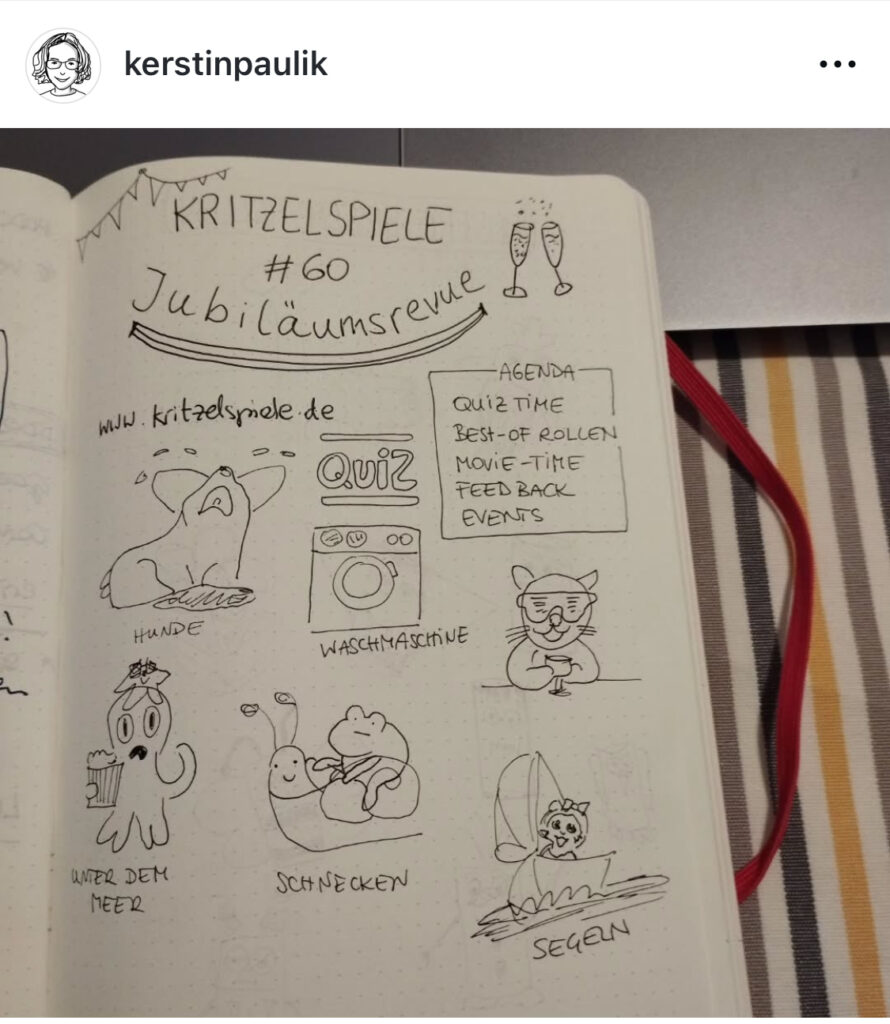 kerstinpaulik
KRITZELSPIELE
#60
Jubiläumsrevue
www.kritzelspiele.de
QUIZ
AGENDA
QUIZ TIME
BEST-OF ROLLEN
MOVIE-TIME
FEEDBACK
EVENTS
HUNDE
WASCHMASCHINE
UNTER DEM
MEER
SCHNECKEN
SEGELN